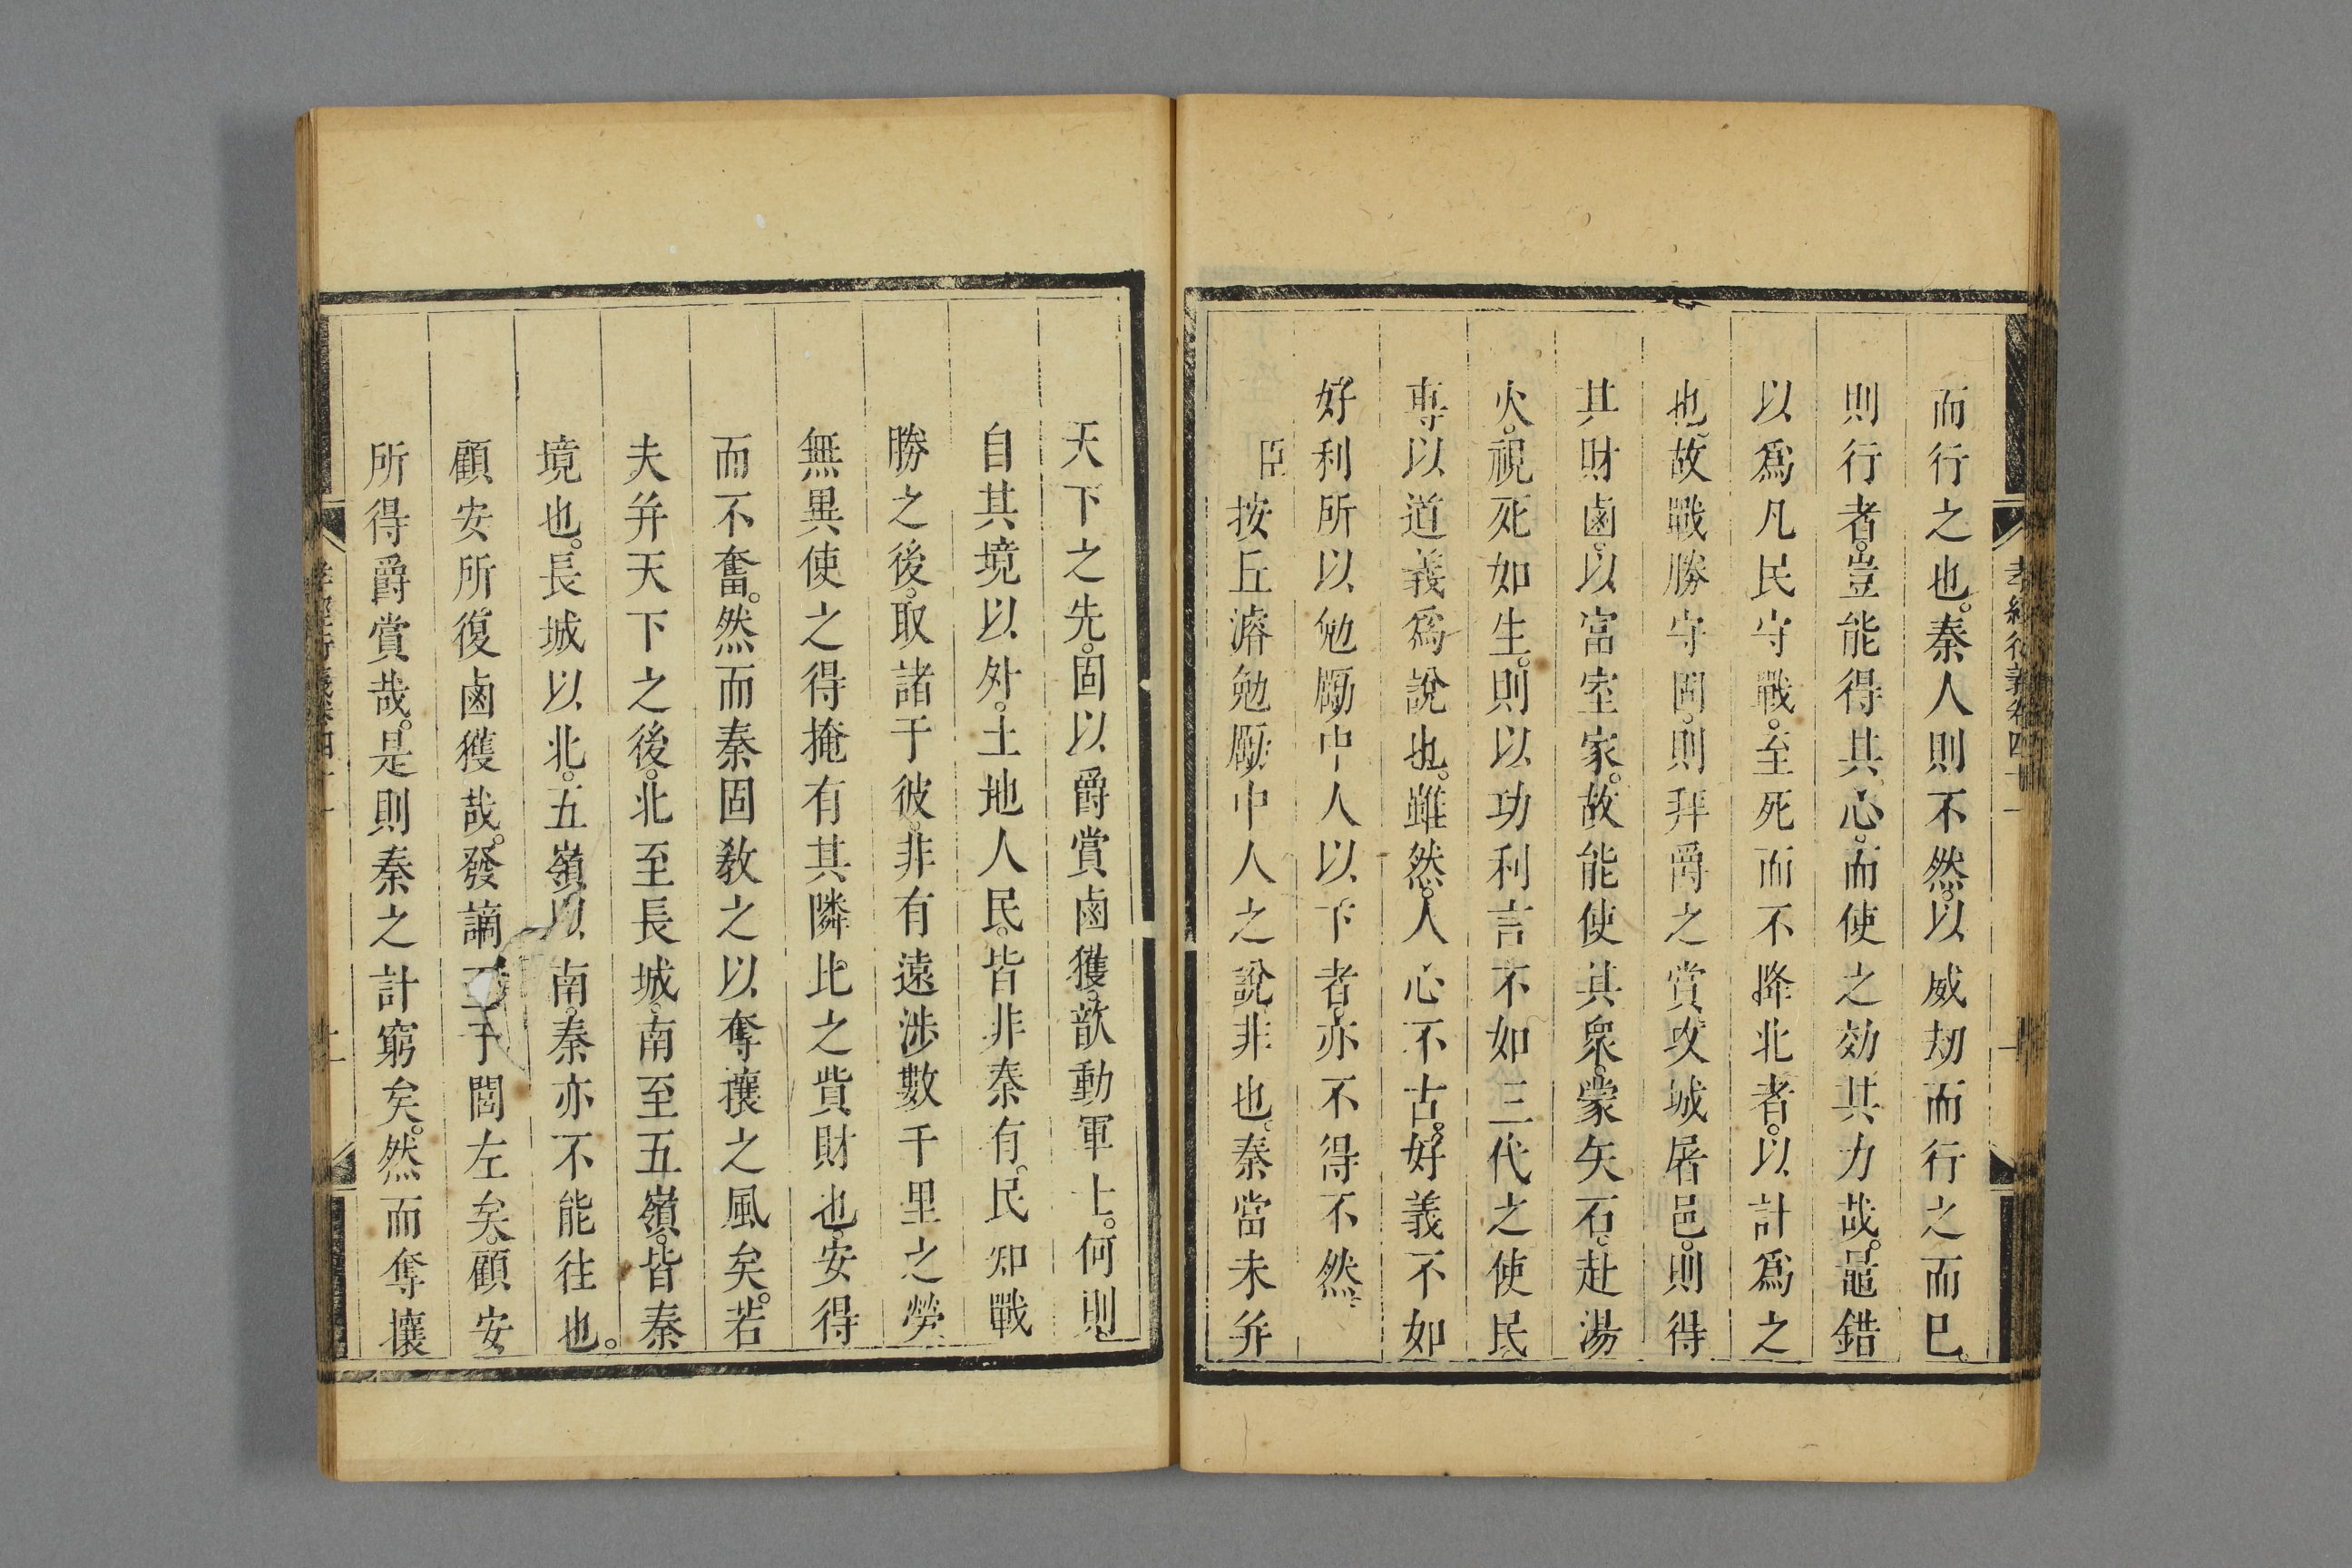 而行之也。秦人則不然。以威刼而行之而巳。
則行者。豈能得其心。而使之効其力哉。鼂錯
以爲凡民守戰。至死而不降北者。以計爲之
也。故戰勝守固。則拜爵之賞。攻城屠邑。則得
其財鹵。以富室家。故能使其衆。蒙矢石。赴湯
火。視死如生。則以功利言。不如三代之使民
專以道義爲說也。雖然。人心不古。好義不如
好利。所以勉勵中人以下者。亦不得不然。
臣按丘濬勉勵中人之說非也。秦當未并
天下之先。固以爵賞鹵獲。歆動軍士。何則。
自其境以外。土地人民。皆非秦有。民知戰
勝之後。取諸于彼。非有遠涉數千里之勞。
無異使之得掩有其隣比之貲財也。安得
而不奮。然而秦固敎之以奪攘之風矣。若
夫并天下之後。北至長城。南至五嶺。皆秦
境也。長城以北。五嶺以南。秦亦不能往也。
顧安所復鹵獲哉。發謫至于閭左矣。顧安
所得爵賞哉。是則秦之計窮矣。然而奪攘